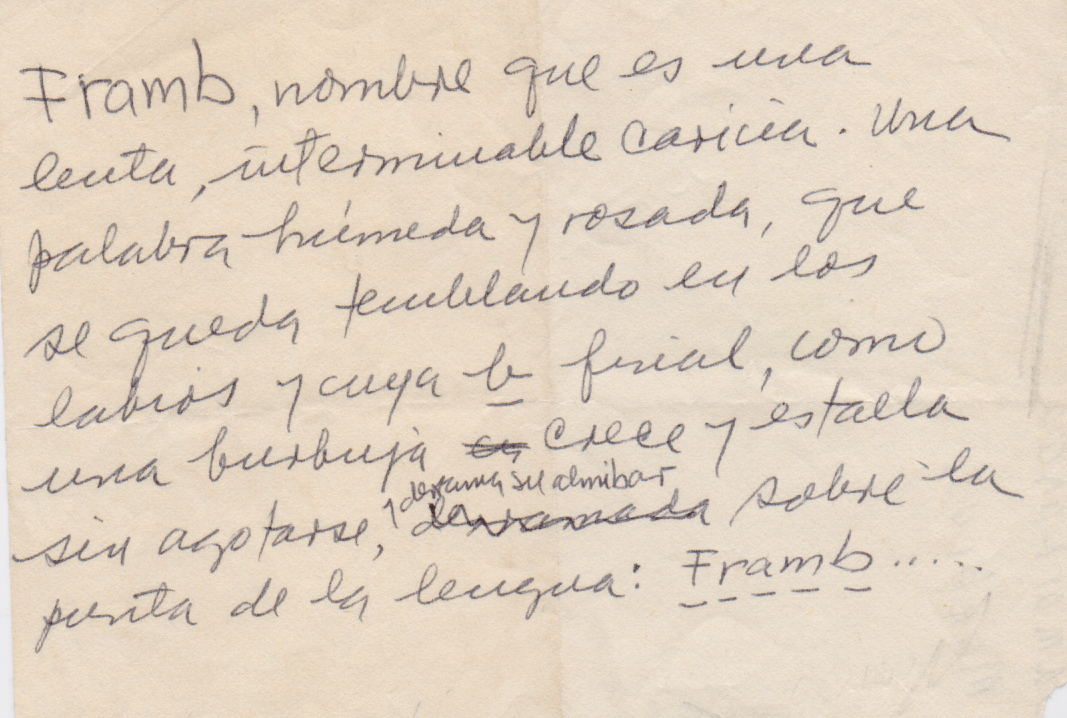 Framb, nombre que es una
lenta, interminable caricia. Una
palabra húmeda y rosada, que
se queda temblando en los
labios y cuya b final, como
una burbuja crece y estalla
y derrama su almíbar
sin agotarse, derramada sobre la
punta de la lengua: Framb.....